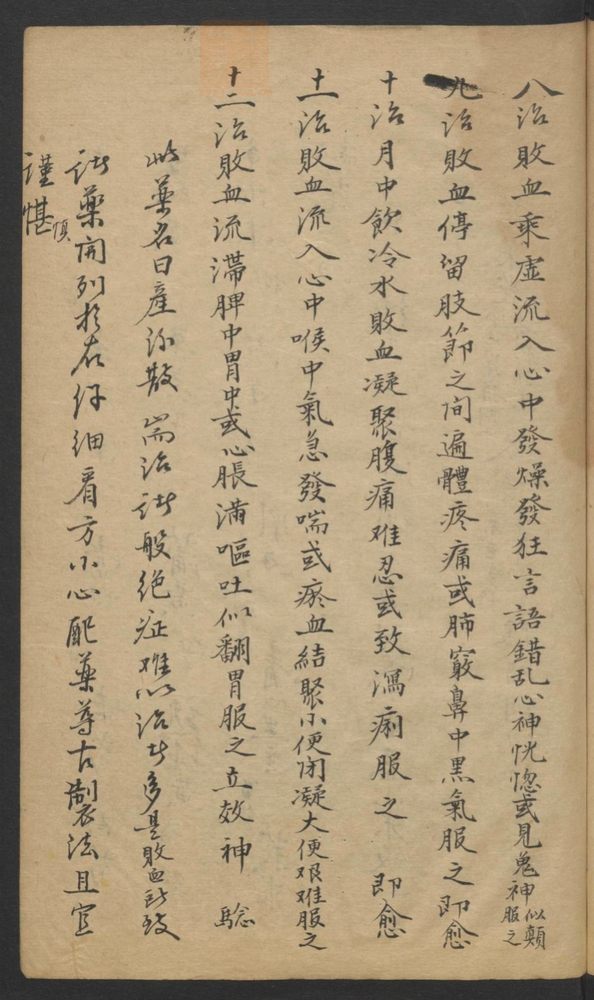 八治敗血乘虛流入心中發燥發狂言語錯乱心神恍惚或見鬼神似顛服之
九治敗血停留肢節之间遍體疼痛或肺竅鼻中黑氣服之即愈
十治月中飲冷水敗血凝聚腹痛难忍或致瀉痢服之即愈
十一治敗血流入心中喉中氣急發喘或瘀血結聚小便闭凝大便艰难服之
十二治敗血流滯脾中胃中或心脹滿嘔吐似翻胃服之立效神驗
此藥名曰產後散耑治諸般絕症难以治者多是敗血所致
諸藥開列於右仔細看方小心配藥尊古制法且宜
謹慎